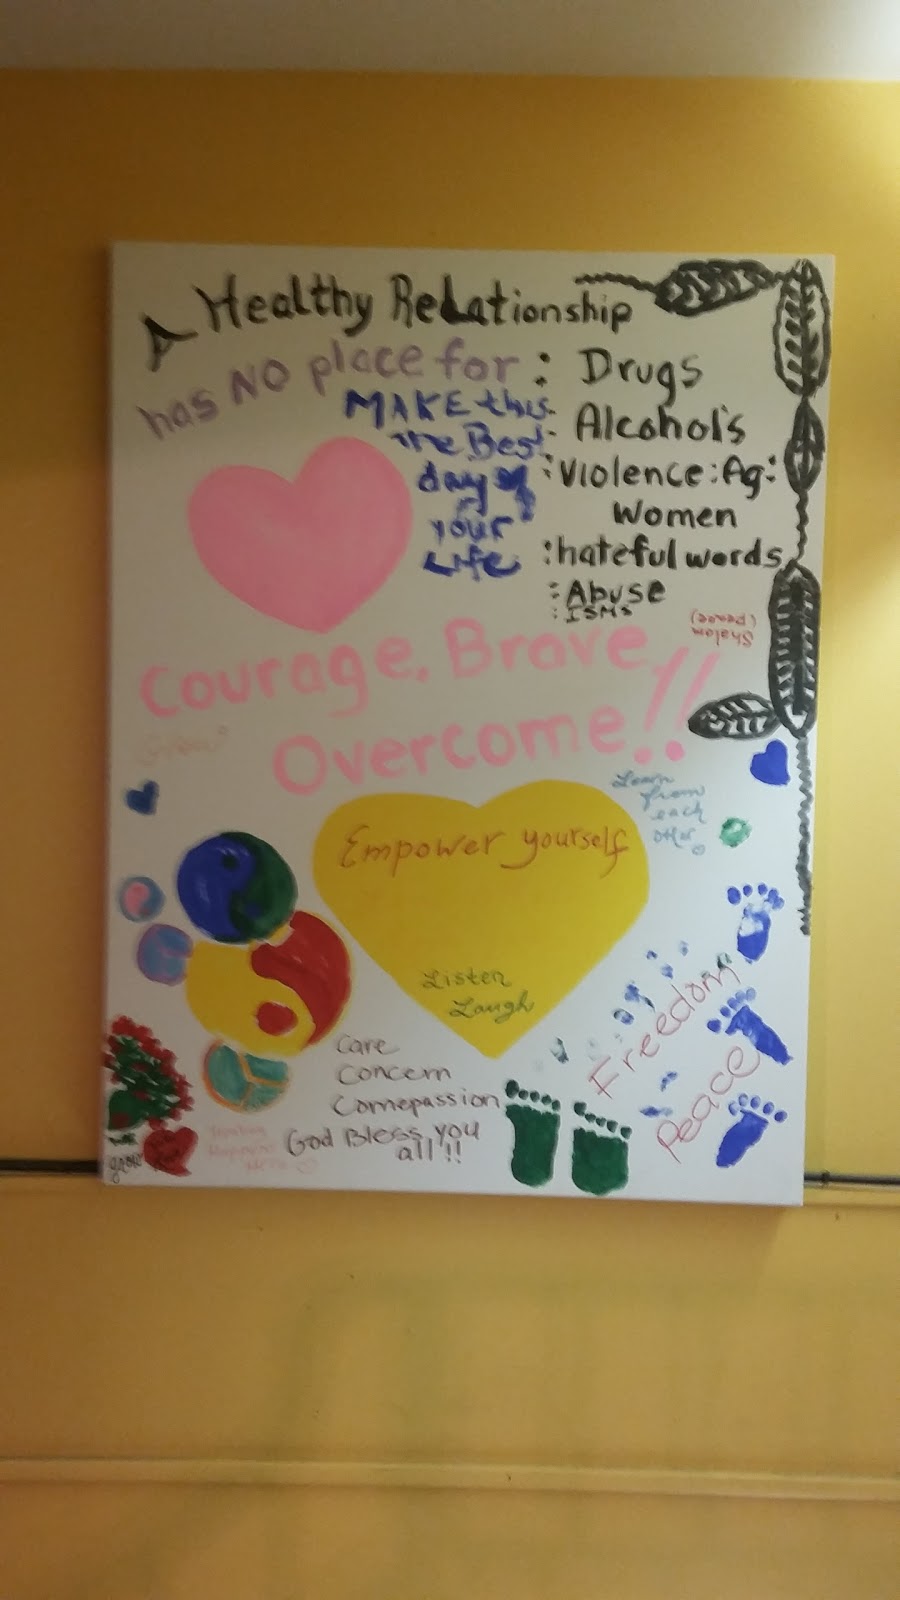 A Healthy Relationship
has NO place for : Drugs
Alcohol's
:Violence:Ag:
Women
:hateful words
:Abuse
:ISMs
MAKE this
the Best
day of
your
Life
Shalom
(peace)
Courage, Brave,
Overcome!!
Learn
from
each
other
Empower yourself
Listen
Laugh
Freedom
Peace
Care
Concern
Comepassion
God Bless you
all!!
grow